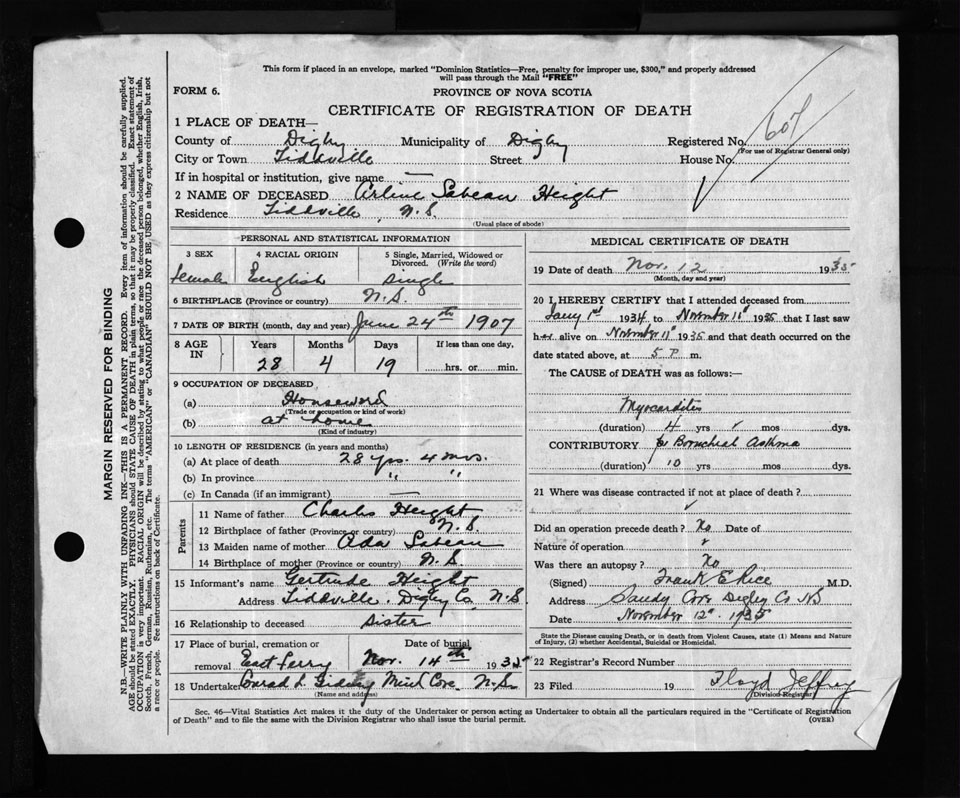 This form if placed in an envelope, marked "Dominion Statistics—Free, penalty for improper use, $300," and properly addressed
will pass through the Mail "FREE"
FORM 6.
PROVINCE OF NOVA SCOTIA
CERTIFICATE OF REGISTRATION OF DEATH
607
1 PLACE OF DEATH—
County of Digby Municipality of Digby Registered No.
(For use of Registrar General only)
City or Town Tiddville Street House No.
If in hospital or institution, give name —
2 NAME OF DECEASED Arline Sabean Height
Residence Tiddville, N.S.
(Usual place of abode)
PERSONAL AND STATISTICAL INFORMATION
3 SEX 4 RACIAL ORIGIN 5 Single, Married, Widowed or
Divorced. (Write the word)
female English single
6 BIRTHPLACE (Province or country) N.S.
7 DATE OF BIRTH (month, day and year) June 24th 1907
8 AGE IN Years Months Days If less than one day,
28 4 19 hrs. or min.
9 OCCUPATION OF DECEASED
(a) Housework
(Trade or occupation or kind of work)
(b) at home
(Kind of industry)
10 LENGTH OF RESIDENCE (in years and months)
(a) At place of death 28 yrs. 4 mos.
(b) In province " "
(c) In Canada (if an immigrant) —
Parents
11 Name of father Charles Height
12 Birthplace of father (Province or country) N.S.
13 Maiden name of mother Ada Sabean
14 Birthplace of mother (Province or country) N.S.
15 Informant's name Gertrude Height
Address Tiddville, Digby Co. N.S.
16 Relationship to deceased Sister
17 Place of burial, cremation or Date of burial
removal East Ferry Nov. 14th 1935
18 Undertaker Conrad L. Gidney Mink Cove. N.S.
(Name and address)
MEDICAL CERTIFICATE OF DEATH
19 Date of death Nov. 12 1935
(Month, day and year)
20 I HEREBY CERTIFY that I attended deceased from
Jany 1st 1934 to November 11th 1935 that I last saw
her alive on November 11th 1935 and that death occurred on the
date stated above, at 5 P m.
The CAUSE of DEATH was as follows:—
Myocarditis
(duration) 4 yrs mos dys.
CONTRIBUTORY Bronchial Asthma
(duration) 10 yrs mos dys.
21 Where was disease contracted if not at place of death?
Did an operation precede death? No Date of
Nature of operation
Was there an autopsy? No
(Signed) Frank E Rice M.D.
Address Sandy Cove Digby Co NS
Date November 12th 1935
State the Disease causing Death, or in death from Violent Causes, state (1) Means and Nature
of Injury, (2) whether Accidental, Suicidal or Homicidal.
22 Registrar's Record Number
23 Filed 19 Floyd Jeffrey
(Division Registrar)
Sec. 46—Vital Statistics Act makes it the duty of the Undertaker or person acting as Undertaker to obtain all the particulars required in the "Certificate of Registration
of Death" and to file the same with the Division Registrar who shall issue the burial permit.
(OVER)
MARGIN RESERVED FOR BINDING
N.B—WRITE PLAINLY WITH UNFADING INK—THIS IS A PERMANENT RECORD. Every item of information should be carefully supplied.
AGE should be stated EXACTLY. PHYSICIANS should STATE CAUSE OF DEATH in plain terms, so that it may be properly classified. Exact statement of
OCCUPATION is very important. RACIAL ORIGIN will be described by stating to what people or race the deceased person belonged, whether English, Irish,
Scotch, French, German, Russian, Ruthenian, etc. The terms "AMERICAN" or "CANADIAN" SHOULD NOT BE USED as they express citizenship but not
a race or people. See instructions on back of Certificate.